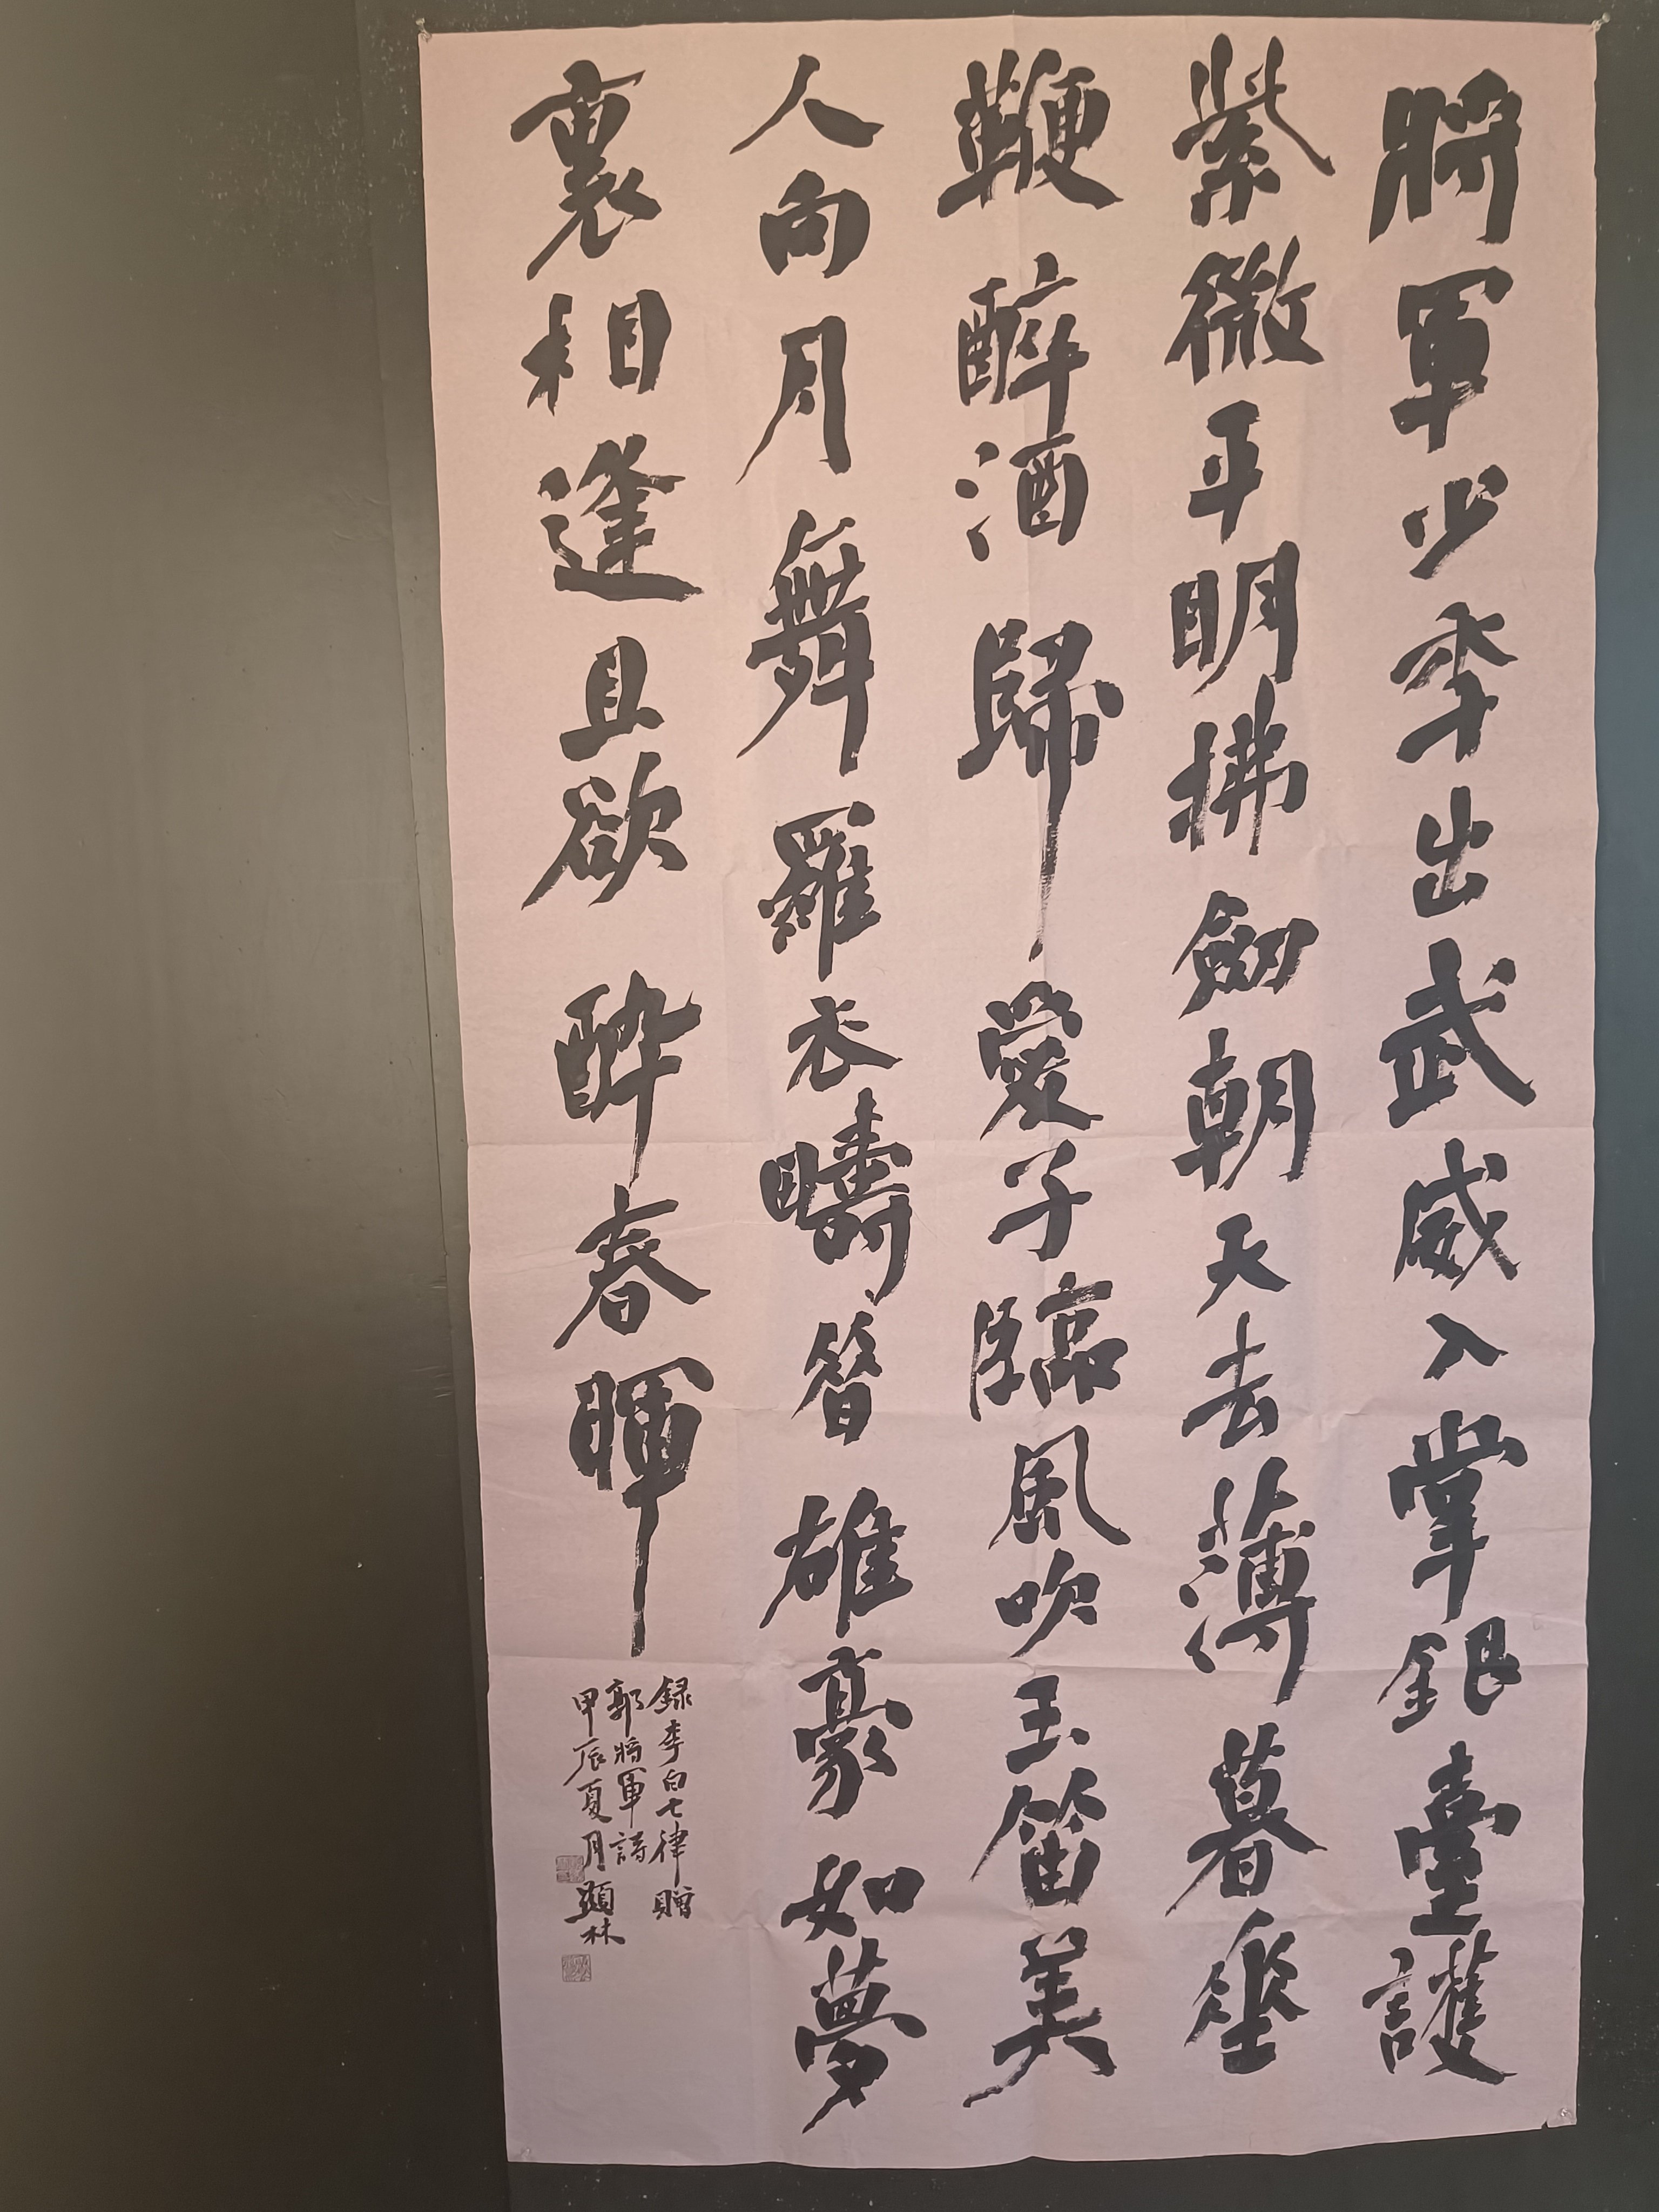 將軍少秊出武威入掌銀臺護
紫微平明拂劍朝天去薄暮垂
鞭醉酒歸愛子臨風吹玉笛美
人向月舞羅衣疇昔雄豪如夢
裏相逢且欲醉春暉
録李白七律贈
郭將軍詩
甲辰夏月顯林